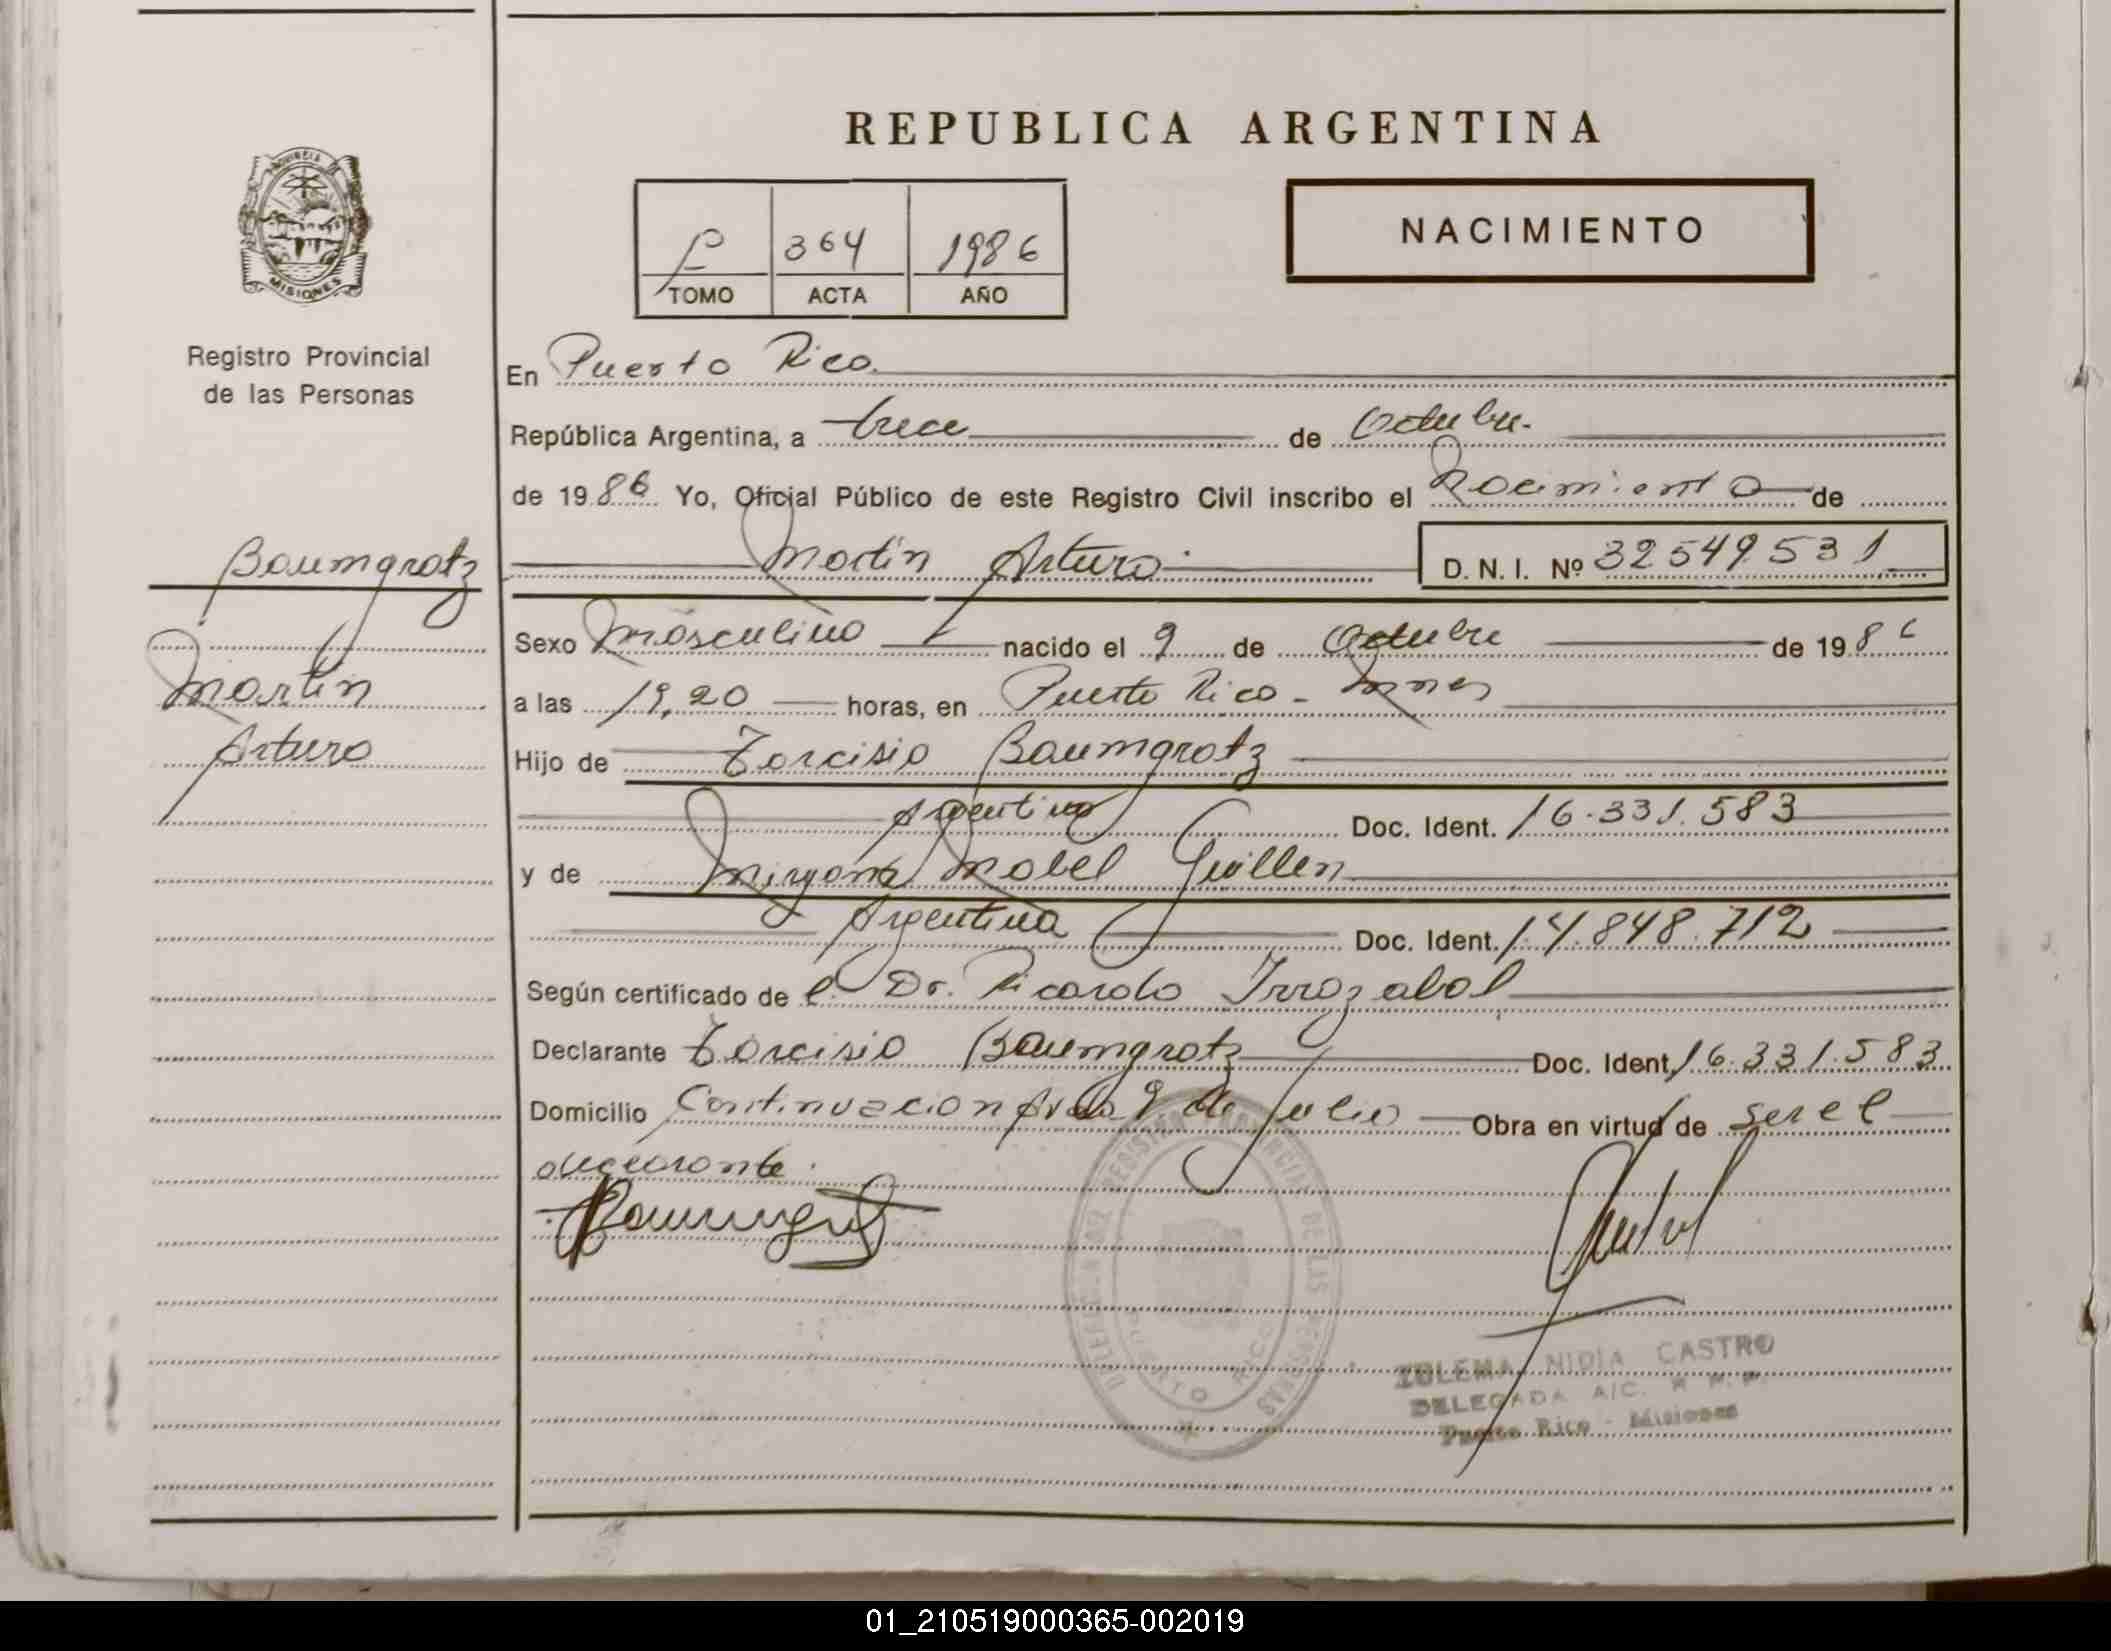 REPUBLICA ARGENTINA
NACIMIENTO
364 1986
TOMO ACTA AÑO
PROVINCIA DE
MISIONES
Registro Provincial
de las Personas
En Puerto Rico
República Argentina, a trece de Octubre.
de 1986 Yo, Oficial Público de este Registro Civil inscribo el Nacimiento de
Martin Arturo D. N. I. Nº 32549531
Baumgratz
Martin
Arturo
Sexo Masculino nacido el 9 de Octubre de 1986
a las 19,20 horas, en Puerto Rico - Mnes
Hijo de Tarcisio Baumgratz
Argentino Doc. Ident. 16.331.583
y de Miryana Mabel Guillen
Argentina Doc. Ident. 14.848.712
Según certificado de el Dr. Ricardo Irrazabal
Declarante Tarcisio Baumgratz Doc. Ident. 16.331.583
Domicilio Continuacion Avda 9 de Julio Obra en virtud de ser el
declarante.
DELEGACION DEL REGISTRO PROVINCIAL DE LAS PERSONAS
PUERTO RICO
NIDIA CASTRO
DELEGADA A/C.
Puerto Rico - Misiones
01_210519000365-002019